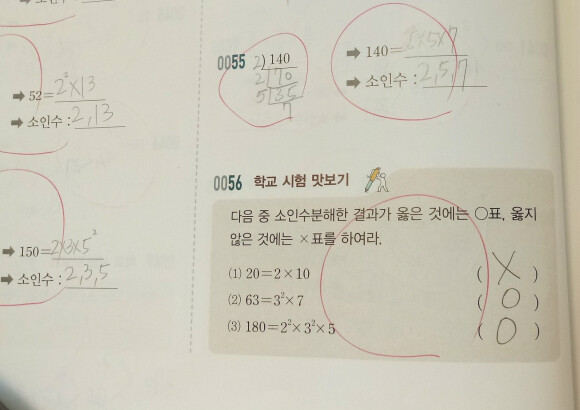 ➡ 52=2²×13
➡ 소인수 : 2, 13
➡ 150=2×3×5²
➡ 소인수 : 2, 3, 5
0055
2)140
2)70
5)35
7
➡ 140=2²×5×7
➡ 소인수 : 2, 5, 7
0056 학교 시험 맛보기
다음 중 소인수분해한 결과가 옳은 것에는 ○표, 옳지
않은 것에는 ×표를 하여라.
⑴ 20=2×10 ( X )
⑵ 63=3²×7 ( O )
⑶ 180=2²×3²×5 ( O )